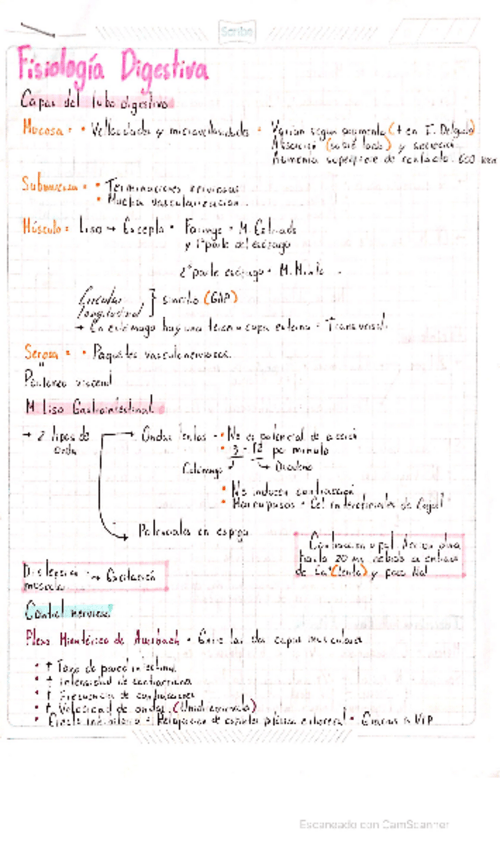 Scribe
Fisiología Digestiva
Capas del tubo digestivo
Mucosa = • Vellosidades y microvellosidades = Varían según segmento (+ en I. Delgado)
Absorción (sobre todo) y secreción
Aumenta superficie de contacto. 600 veces
Submucosa = • Terminaciones nerviosas
• Mucha vascularización.
Músculo = Liso → Excepto = Faringe = M. Estriado
y 1ª parte del esófago
2ª parte esófago = M. Mixto
Circular
Longitudinal } sincitio (GAP)
→ En estómago hay una tercera capa externa = Transversal
Serosa = • Paquetes vasculonerviosos.
Peritoneo visceral
M. Liso Gastrointestinal
→ 2 tipos de onda
Ondas lentas • No es potencial de acción
• 3 - 12 por minuto
Estómago Duodeno
• No inducen contracción
• Marcapasos = Cel intersticiales de Cajal
Potenciales en espiga
Contracción
hasta 20 ms debido a entrada
de Ca (lento) y poco Na
Distensión → Excitación
músculo
Control nervioso
Plexo Mientérico de Auerbach = Entre las dos capas musculares
• ↑ Tono de pared intestinal
• ↑ intensidad de contracciones
• ↑ Frecuencia de contracciones
• ↑ Velocidad de ondas (Unidireccionales)
• Efecto inhibitorio = Relajación de esfínter pilórico e ileocecal = Gracias a VIP
Escaneado con CamScanner